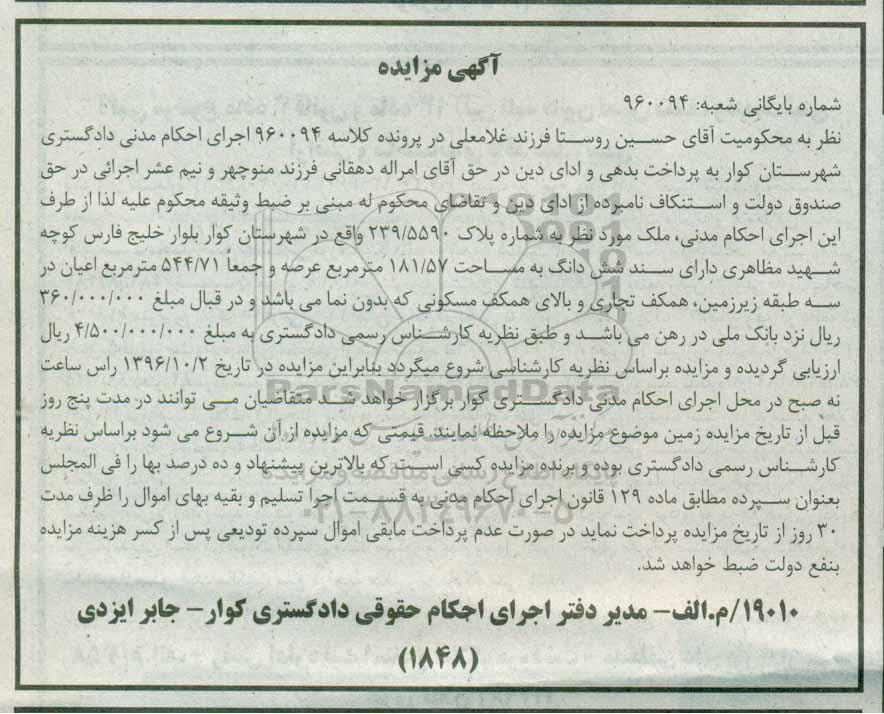 آگهی مزایده
شماره بایگانی شعبه: ۹۶۰۰۹۴
نظر به محکومیت آقای حسین روستا فرزند غلامعلی در پرونده کلاسه ۹۶۰۰۹۴ اجرای احکام مدنی دادگستری
شهرستان کوار به پرداخت بدهی و ادای دین در حق آقای امراله دهقانی فرزند منوچهر و نیم عشر اجرائی در حق
صندوق دولت و استنکاف نامبرده از ادای دین و تقاضای محکوم له مبنی بر ضبط وثیقه محکوم علیه لذا از طرف
این اجرای احکام مدنی، ملک مورد نظر به شماره پلاک ۲۳۹/۵۵۹۰ واقع در شهرستان کوار بلوار خلیج فارس کوچه
شهید مظاهری دارای سند شش دانگ به مساحت ۱۸۱/۵۷ مترمربع عرصه و جمعاً ۵۴۴/۷۱ مترمربع اعیان در
سه طبقه زیرزمین، همکف تجاری و بالای همکف مسکونی که بدون نما می باشد و در قبال مبلغ ۳۶۰/۰۰۰/۰۰۰
ریال نزد بانک ملی در رهن می باشد و طبق نظریه کارشناس رسمی دادگستری به مبلغ ۴/۵۰۰/۰۰۰/۰۰۰ ریال
ارزیابی گردیده و مزایده براساس نظریه کارشناسی شروع میگردد بنابراین مزایده در تاریخ ۱۳۹۶/۱۰/۲ راس ساعت
نه صبح در محل اجرای احکام مدنی دادگستری کوار برگزار خواهد شد متقاضیان می توانند در مدت پنج روز
قبل از تاریخ مزایده زمین موضوع مزایده را ملاحظه نمایند. قیمتی که مزایده از آن شروع می شود براساس نظریه
کارشناس رسمی دادگستری بوده و برنده مزایده کسی است که بالاترین پیشنهاد و ده درصد بها را فی المجلس
بعنوان سپرده مطابق ماده ۱۲۹ قانون اجرای احکام مدنی به قسمت اجرا تسلیم و بقیه بهای اموال را ظرف مدت
۳۰ روز از تاریخ مزایده پرداخت نماید در صورت عدم پرداخت مابقی اموال سپرده تودیعی پس از کسر هزینه مزایده
بنفع دولت ضبط خواهد شد.
۱۹۰۱۰/م.الف- مدیر دفتر اجرای احکام حقوقی دادگستری کوار- جابر ایزدی
(۱۸۴۸)
ParsNamadData
پایگاه اطلاع رسانی مناقصه و مزایده
۰۲۱-۸۸۳۴۹۶۷۰-۵